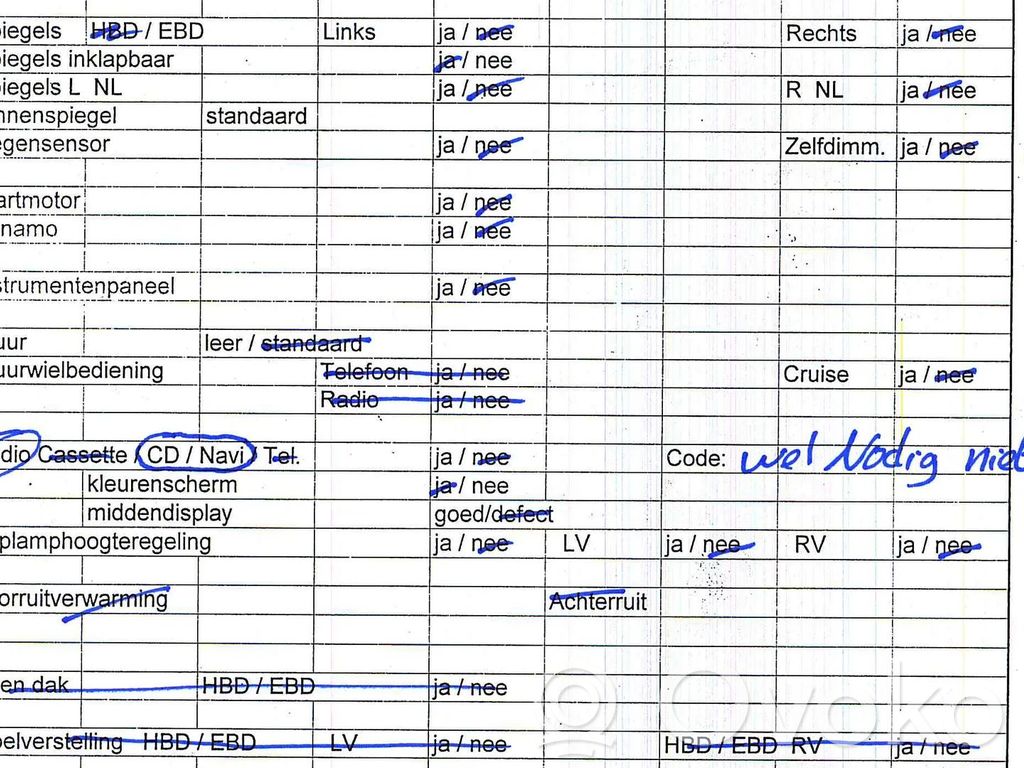 iegels HBD / EBD Links ja / nee Rechts ja / nee
iegels inklapbaar ja / nee
iegels L NL ja / nee R NL ja / nee
nnenspiegel standaard
egensensor ja / nee Zelfdimm. ja / nee
artmotor ja / nee
namo ja / nee
strumentenpaneel ja / nee
uur leer / standaard
uurwielbediening Telefoon ja / nee Cruise ja / nee
Radio ja / nee
dio Cassette / CD / Navi / Tel. ja / nee Code: wel Nodig niet
kleurenscherm ja / nee
middendisplay goed/defect
plamphoogteregeling ja / nee LV ja / nee RV ja / nee
orruitverwarming Achterruit
en dak HBD / EBD ja / nee
elverstelling HBD / EBD LV ja / nee HBD / EBD RV ja / nee
Ovoko